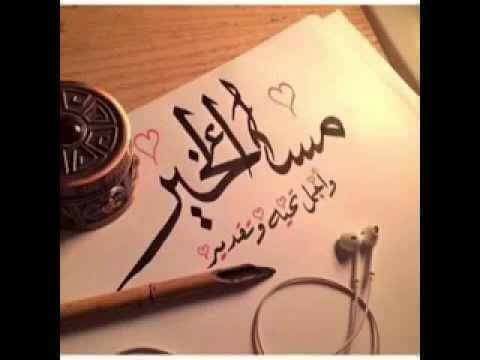 مساء الخير
وأجمل تحيه وتقدير